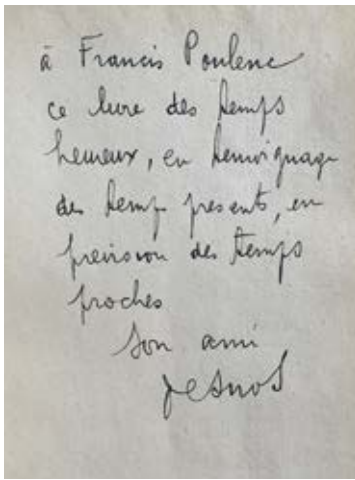 à Francis Poulenc
ce livre des temps
heureux, en temoignage
des temps presents, en
prevision des temps
proches
son ami
Desnos